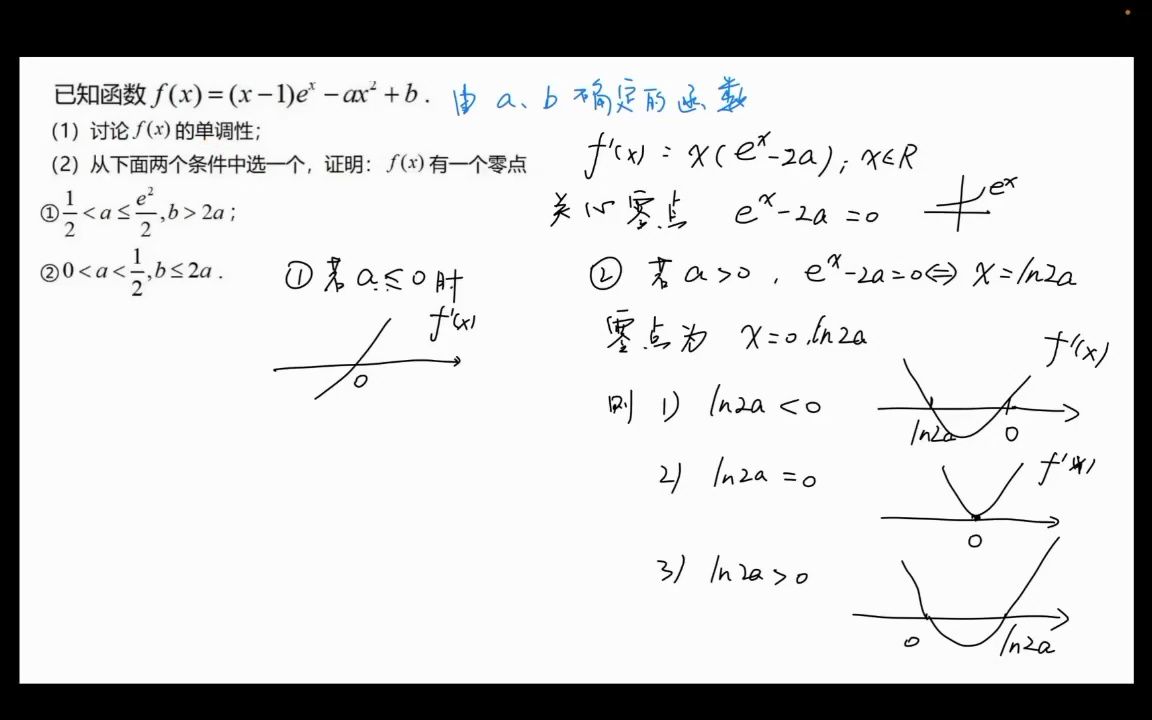 已知函数 f(x) = (x−1)eˣ − ax² + b．
由 a、b 确定的函数
(1) 讨论 f(x) 的单调性；
(2) 从下面两个条件中选一个，证明：f(x) 有一个零点
① 1/2 < a ≤ e²/2, b > 2a；
② 0 < a < 1/2, b ≤ 2a．
f'(x) = x(eˣ − 2a)；x∈R
关心零点 eˣ − 2a = 0
eˣ
① 若 a ≤ 0 时
f'(x)
0
② 若 a > 0 , eˣ − 2a = 0 ⇔ x = ln2a
零点为 x = 0 , ln2a
f'(x)
则 1) ln2a < 0
ln2a 0
2) ln2a = 0
f'(x)
0
3) ln2a > 0
0 ln2a